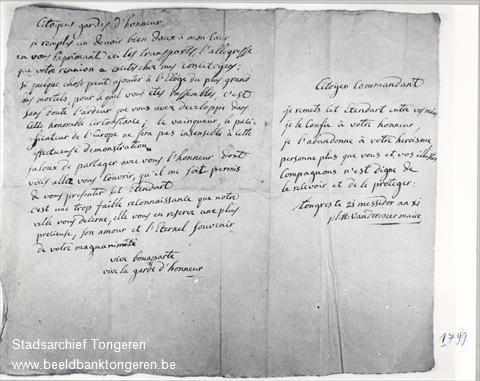 Citoyens gardes d'honneur
je remplis un devoir bien doux à mon cœur
en vous exprimant ici les transports l'allégresse
que votre réunion a excités chez mes concitoyens;
si quelque chose peut ajouter à l'Eloge du plus grand
des mortels, pour qui vous êtes rassemblés c'est
sans doute l'ardeur que vous avez developpé dans
cette honorable circonstance; le vainqueur, le paci-
ficateur de l'Europe ne sera pas insensible à cette
affectueuse démonstration
jaloux de partager avec vous l'honneur dont
vous allez vous couvrir, qu'il me soit permis
de vous présenter cet étendart
c'est une trop faible reconnaissance que notre
ville vous décerne, elle vous en reserve une plus
précieuse, son amour et l'Eternel souvenir
de votre magnanimité
vive bonaparte
vive la garde d'honneur
Citoyen Commandant
je remets cet Etendart entre vos mains
je le Confie à votre honneur,
je l'abandonne à votre héroïsme
personne plus que vous et vos
Compagnons n'est digne de
le relevoir et de le proteger.
Tongres le 25 messidor an XI
Vandermeer maire
1799
Stadsarchief Tongeren
www.beeldbanktongeren.be